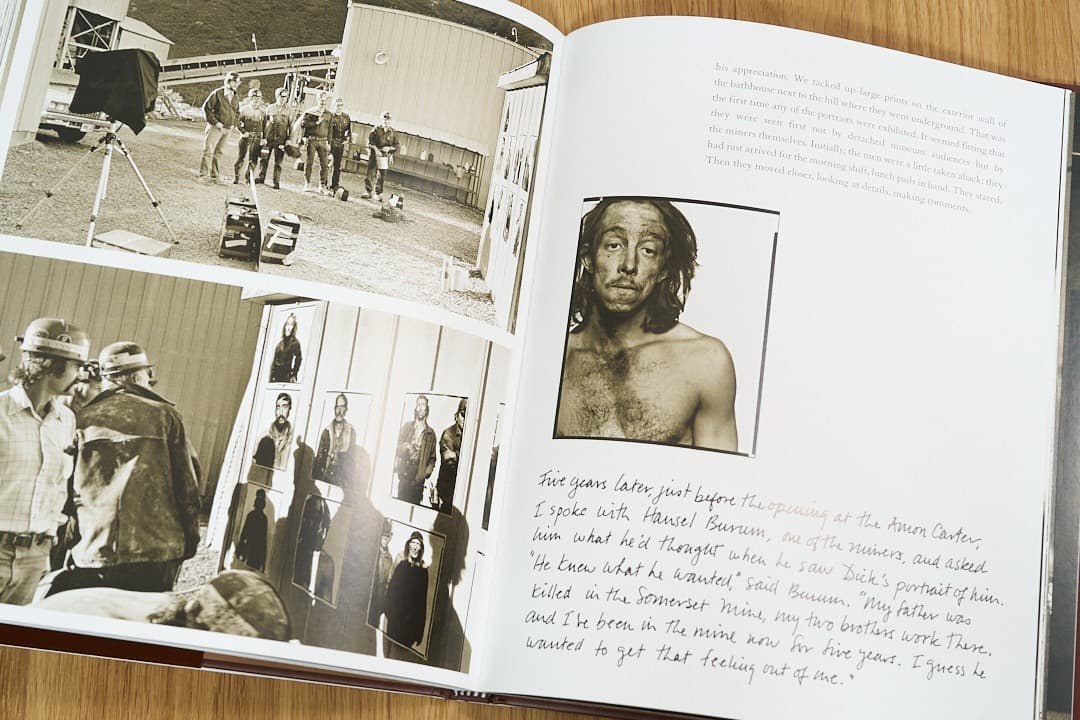 his appreciation. We tacked up large prints on the exterior wall of
the bathhouse next to the hill where they went underground. That was
the first time any of the portraits were exhibited. It seemed fitting that
they were seen first not by detached museum audiences but by
the miners themselves. Initially, the men were a little taken aback; they
had just arrived for the morning shift, lunch pails in hand. They stared.
Then they moved closer, looking at details, making comments.
Five years later, just before the opening at the Amon Carter,
I spoke with Hansel Burum, one of the miners, and asked
him what he'd thought when he saw Dick's portrait of him.
"He knew what he wanted," said Burum. "My father was
killed in the Somerset Mine, my two brothers work there,
and I've been in the mine now for five years. I guess he
wanted to get that feeling out of me."